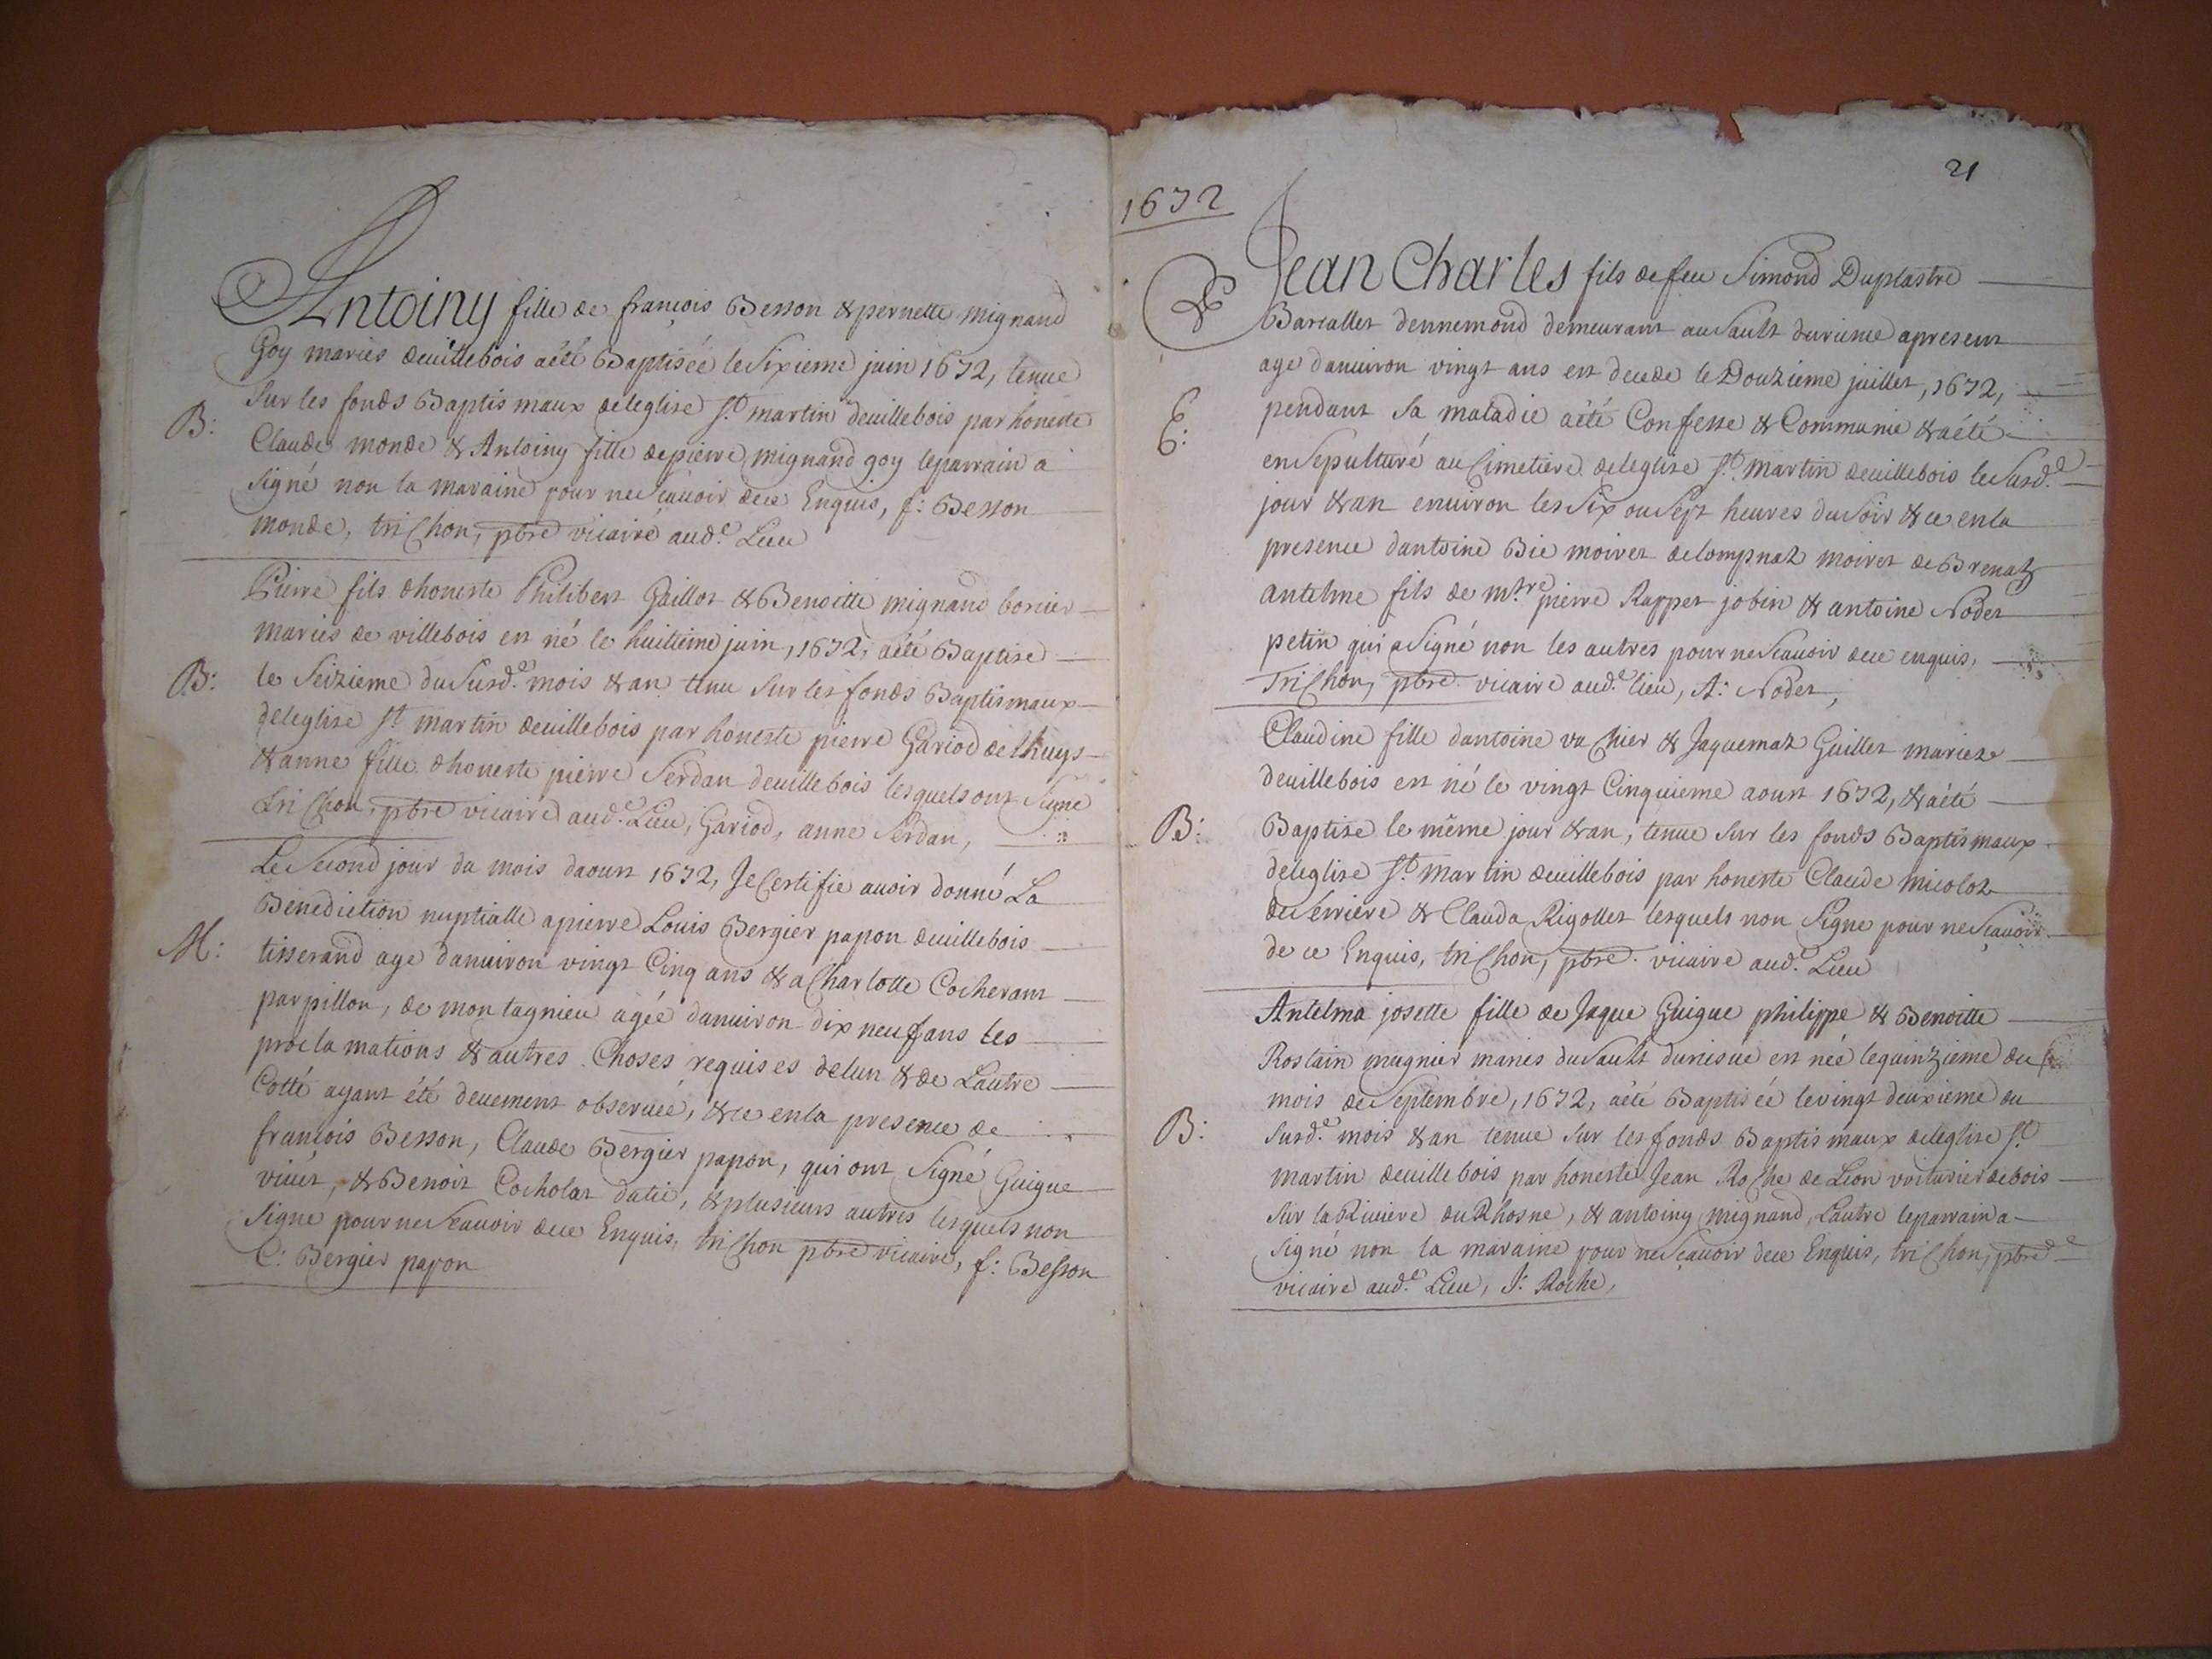 Antoiny fille de francois Besson & pernette mignand
Goy maries deuillebois aété Baptisée le Sixieme juin 1672, tenue
Sur les fonds Baptismaux deleglise St. martin deuillebois par honeste
B:
Claude monde & Antoiny fille depierre mignand goy leparrain a
Signé non la maraine pour ne Scauoir dece Enquis, f: Besson
monde, trichon, pbre vicaire aud.e Lieu
Pierre fils dhoneste Philibert Gaillot & Benoitte mignand borsier
maries de villebois est né le huitieme juin, 1672, aété Baptise
B:
le Seizieme du Susd.e mois & an tenu Sur les fonds Baptismaux
deleglise St martin deuillebois par honeste pierre Gariod de Lhuys
& anne fille dhoneste pierre Serdan deuillebois lesquels ont Signe
trichon, pbre vicaire aud.e Lieu, Gariod, anne Serdan,
Le Second jour du mois daoust 1672, Je Certifie auoir donné La
Benediction nuptialle apierre Louis Bergier papon deuillebois
M:
tisserand age danuiron vingt Cinq ans & a Charlotte Cocherant
parpillon, de montagnieu agée danuiron dix neuf ans les
proclamations & autres Choses requises delun & de Lautre
Cotté ayant été deuement obseruée, & ce enla presence de
francois Besson, Claude Bergier papon, qui ont Signé Guigue
viuet, & Benoit Cocholat datié, & plusieurs autres lesquels non
Signe pour ne Scauoir dece Enquis, trichon pbre vicaire, f: Besson
C: Bergier papon
1672
21
Jean Charles fils de feu Simond Duplastre
Barcallet dennemond demeurant au Sault durieme apresent
age danuiron vingt ans est decede le Douzieme juillet, 1672,
E:
pendant Sa maladie aété Confesse & Communie & aété
enSepulturé au Cimetiere deleglise St. martin deuillebois le Susd.e
jour & an enuiron les Six ou Sept heures du Soir & ce enla
presence dantoine Bie moiret delompnaz moiret de Brenaz
antelme fils de mtre pierre Rappet jobin & antoine Nodet
petin qui a Signé non les autres pour ne Scauoir dece enquis,
Trichon, pbre vicaire aud.e lieu, A: Nodet,
Claudine fille dantoine vachier & Jaquemaz Guillet mariez
deuillebois est né le vingt Cinquieme aoust 1672, & aété
B:
Baptise le même jour & an, tenue Sur les fonds Baptismaux
deleglise St. Martin deuillebois par honeste Claude micoloz
de Serriere & Clauda Rigollet lesquels non Signe pour ne Scauoir
de ce Enquis, trichon, pbre vicaire aud.e Lieu
Antelma josette fille de Jaque Guigue philippe & Benoitte
Rostain mugnier maries du Sault durieme est née lequinzieme du
mois de Septembre, 1672, aété Baptisée levingt deuxieme du
B:
Susd.e mois & an tenue Sur les fonds Baptismaux deleglise St.
martin deuillebois par honeste Jean Roche de Lion voiturier debois
Sur la Riuiere du Rhosne, & antoiny mignand, Lautre leparrain a
Signé non la maraine pour ne Scauoir dece Enquis, trichon, pbre
vicaire aud.e Lieu, J: Roche,